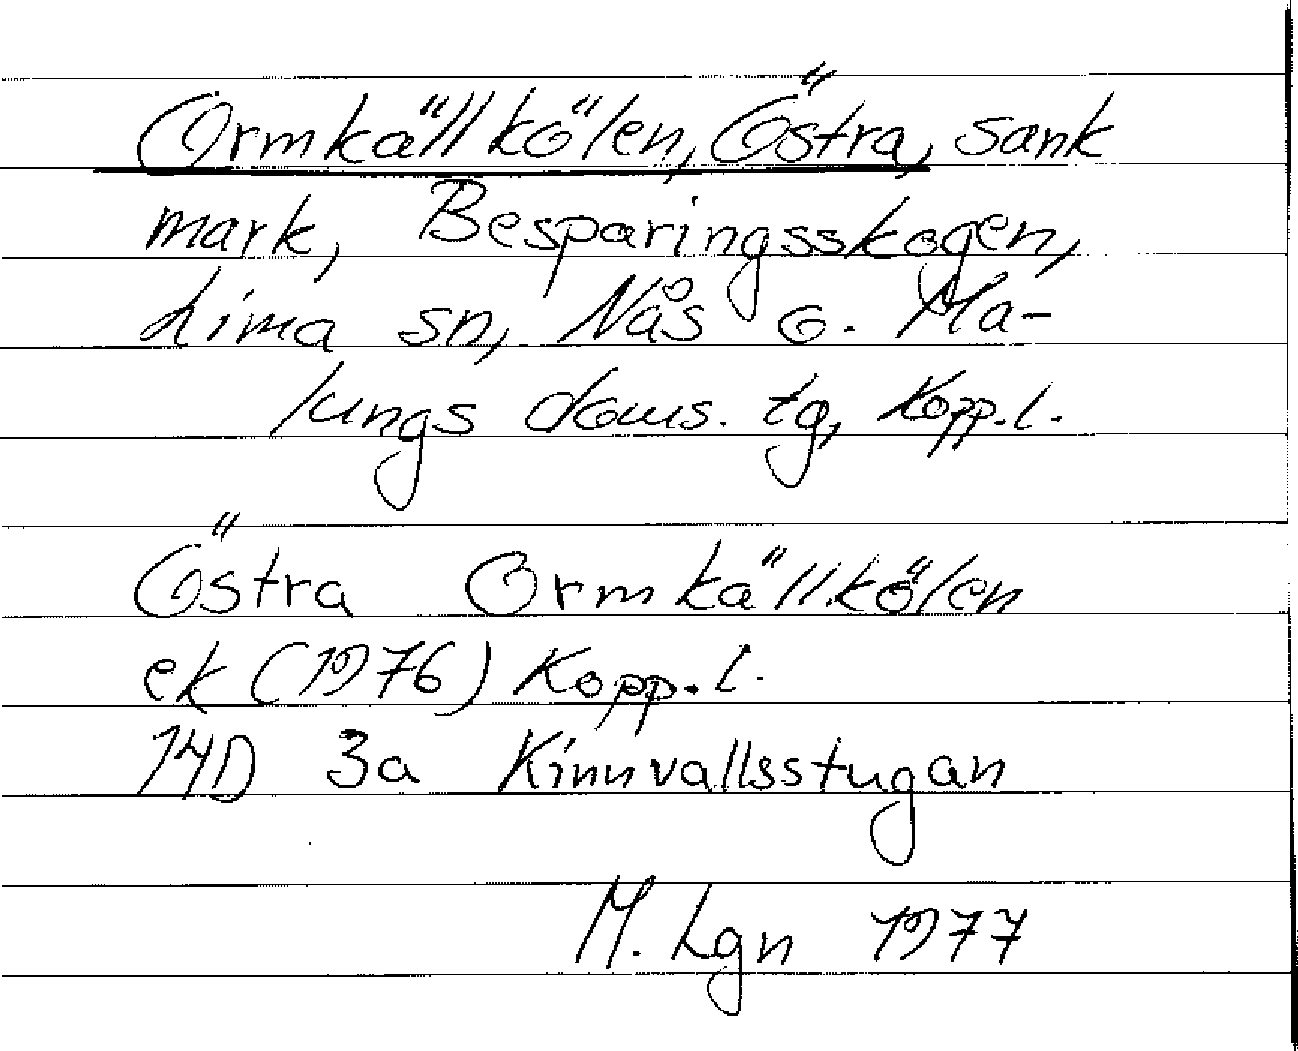 Ormkällkölen, Östra, sank
mark, Besparingsskogen,
Lima sn, Nås o. Ma-
lungs doms. tg, Kopp.l.
Östra Ormkällkölen
ek (1976) Kopp.l.
14D 3a Kinnvallsstugan
M. Lgn 1977